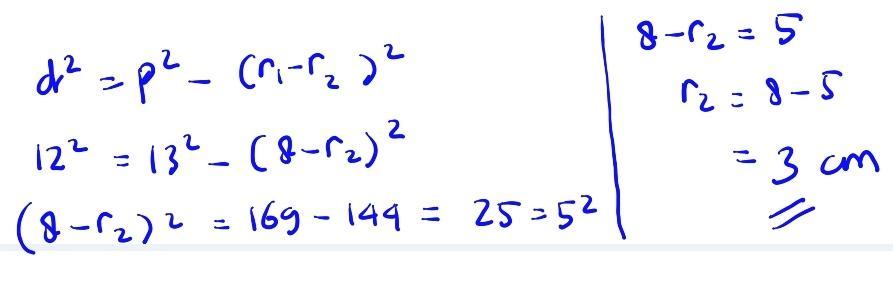 d² = p² - (r₁-r₂)²
12² = 13² - (8-r₂)²
(8-r₂)² = 169 - 144 = 25 = 5²
8-r₂ = 5
r₂ = 8-5
= 3 cm